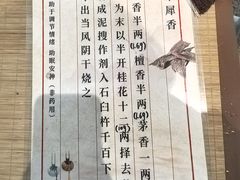 犀香
香半两(1.69)檀香半两(1.69)茅香一两
为末以半开桂花十二两择去
成泥搜作剂入石臼杵千百下
出当风阴干烧之
助于调节情绪 助眠安神(非药用)